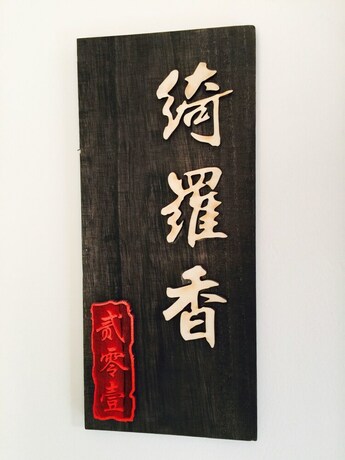 綺羅香
贰零壹